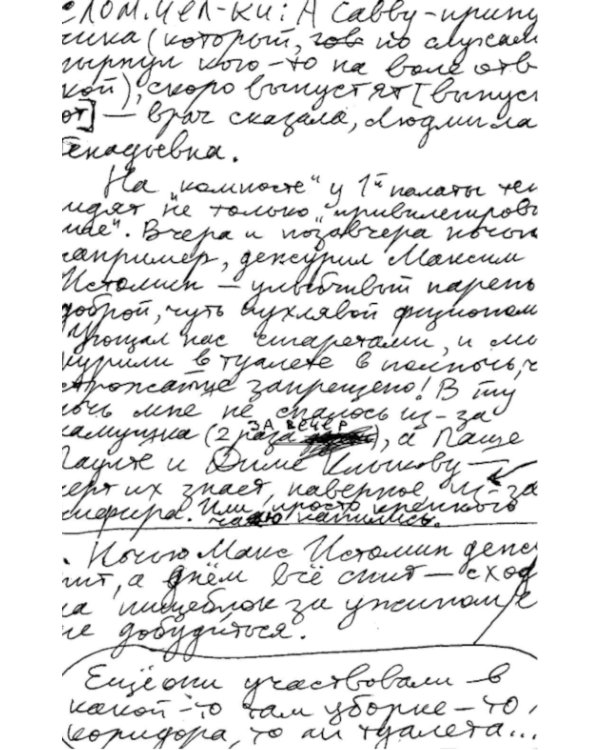 СЛОМ. ЧЕЛ-КИ: А Савву-припу
чика (который, по случаю
пырнул кого-то на воле отв
кой), скоро выпустят [выпус
от] — врач сказала, Людмила
Генадьевна.
На „компосте" у 1й палаты те
сидят не только „привилегиров
ные". Вчера и позавчера ночью
например, дежурил Максим
Истомин — улыбчивый парень
доброй, чуть пухлявой физионом
Угощал нас сигаретами, и м
курили в туалете в полночь, ч
строжайше запрещено! В ту
ночь мне не спалось из-за
(2 раза ЗА ВЕЧЕР), а Паше
и Диме Клыкову —
черт их знает, наверное из-за
чифира. Или просто крепкого
чаю напились.
. Ночью Макс Истомин деж
рит, а днём всё спит — сход
на пищеблок за ужином, е
не добудиться.
Ещё они участвовали в
какой-то там уборке — то
коридора, то ли туалета...